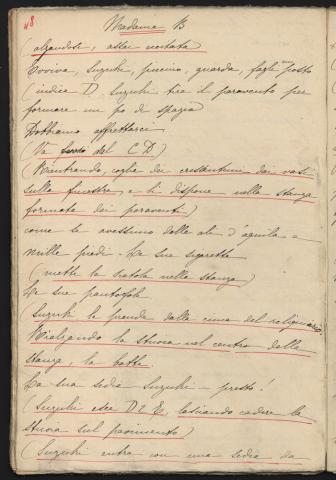 48
Madame B
(alzandosi, assai eccitata
Evviva, Suzuki, piccino, guarda, fagli un posto
(indica D, Suzuki tira il paravento per
formare un po di spazio
Dobbiamo affrettarci
(Va dal C D)
(Rientrando, coglie dei crisantemi dai vasi
sulle finestre, e li dispone nella stanza
formata dei paraventi)
come le avessimo delle ali d'aquila e
mille piedi - Le sue sigarette
(mette la scatola nella stanza)
Le sue pantofole
(Suzuki le prende dalla
Rialzando la stuoia nel centro della
stanza, la batte.
La sua sedia Suzuki - presto!
(Suzuki esce D 2 E, lasciando cadere la
stuoia sul pavimento)
(Suzuki entra con una sedia da